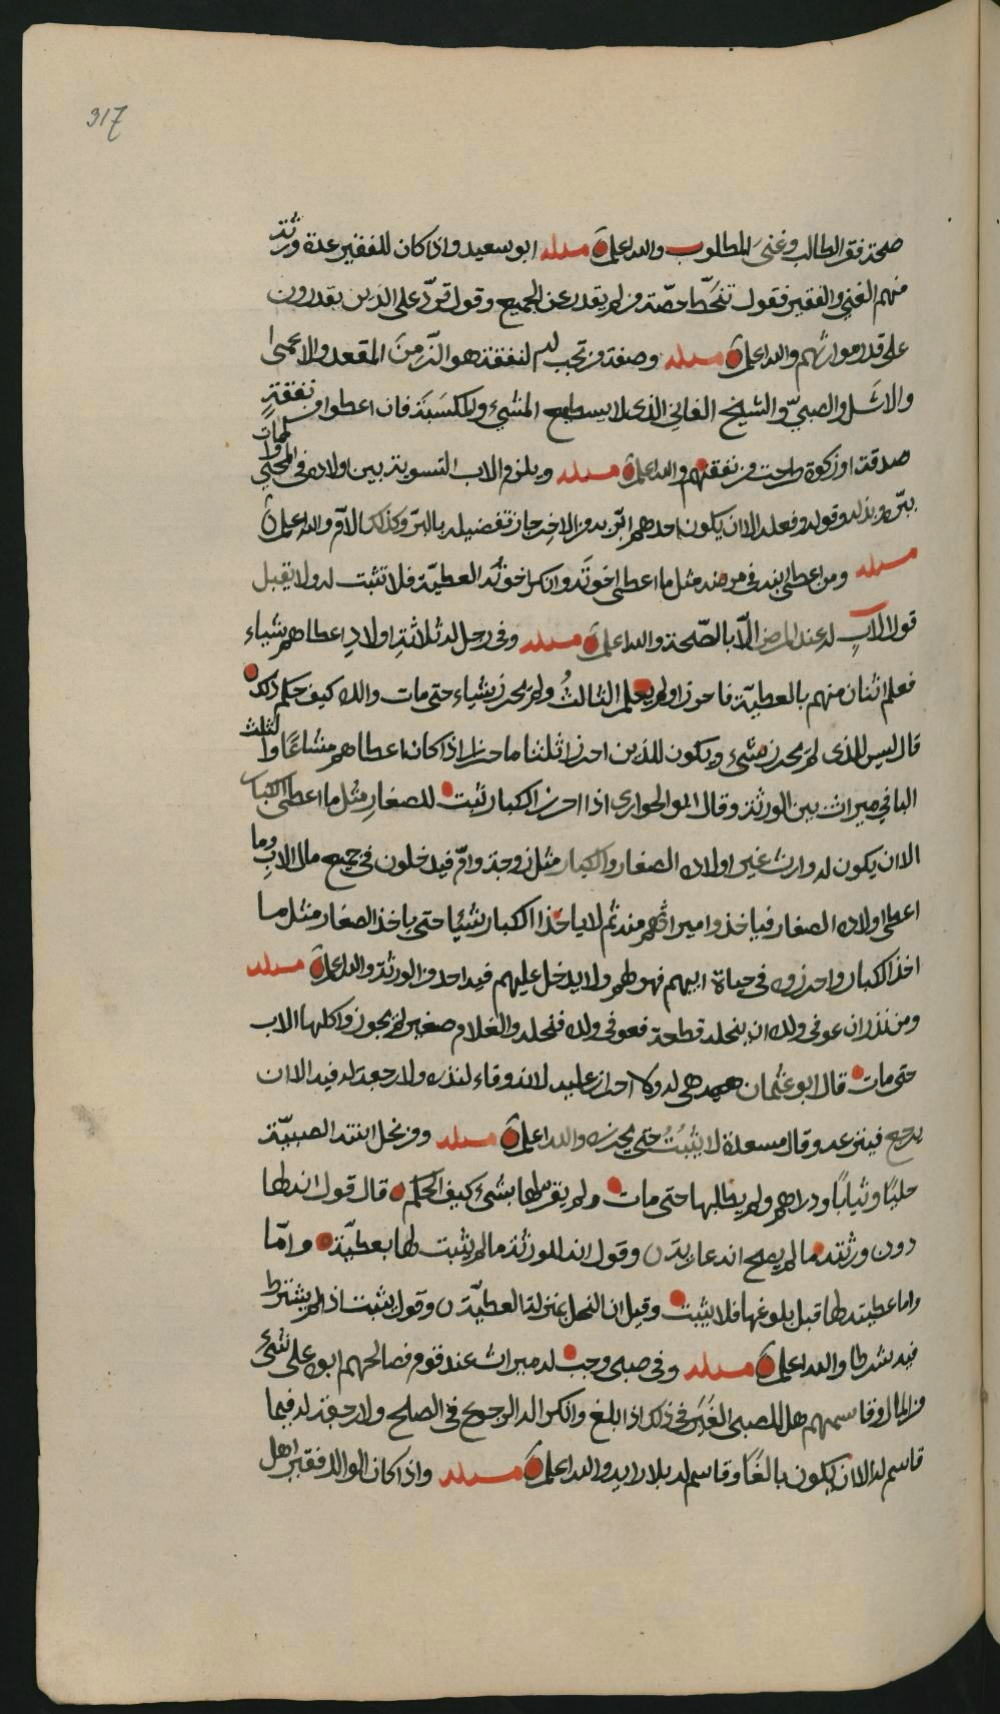 317
صحة فقر الطالب وغنى المطلوب والله اعلم مسئله ابو سعيد واذا كان للفقير عدة ورثة
منهم الغني والفقير فقول تنحطّ حصّة من لم يقدر عن الجميع وقول تردّ على الذين يقدرون
على قدر مواريثهم والله اعلم مسئله وصفة من تجب لهم النفقة هو الزمن المقعد والاعمى
والاشل والصبيّ والشيخ الفاني الذى لا يسطيع المشي والمكسبة فان اعطوا من نفقةٍ
صدقة او زكوة طرحت من نفقتهم والله اعلم مسئله ويلزم الاب التسوية بين اولاده فى المحيى والممات
ببرّه وبذله وقوله وفعله الا ان يكون احدهم ابرّ به من الاخر جاز تفضيله بالبرّ وكذلك الامّ والله اعلم
مسئله ومن اعطى ابنه فى مرضه مثل ما اعطى اخوته وانكر اخوته العطيّة فلا تثبت له ولا يقبل
قول الابِ له عند المرض الّا بالصّحة والله اعلم مسئله وفى رجل له ثلاثةِ اولادٍ اعطاهم شياء
فعلم اثنان منهم بالعطيّة فاحرزا ولم يعلم الثالثُ ولم يحرز شياء حتى مات والده كيف حكم ذلك
قال ليس للذى لم يحرز شىء ويكون للذين احرزا ثلثا ما احرزا اذا كان اعطاهم مشاعًا والثلث
الباقي ميراث بين الورثة وقال ابو الحوارى اذا احرز الكبار ثبت للصغارِ مثل ما اعطى الكبار
الا ان يكون له وارث غير اولاده الصغار والكبار مثل زوجة وامّ فيدخلون فى جميع مال الابِ وما
اعطى اولاده الصغار فياخذوا ميراثهم منه ثم لا ياخذ الكبار شيئا حتى ياخذ الصغار مثل ما
اخذ الكبار واحرزوه فى حياة ابيهم فهو لهم ولا يدخل عليهم فيه احد من الورثة والله اعلم مسئله
ومن نذر ان عوفى ولده ان ينحله قطعة فعوفى ولده فنحله والغلام صغير لم يحوز واكلها الاب
حتى مات قال ابو عثمان هى له ولا احراز عليه لانه وفاء لنذره ولا رجعة له فيه الا ان
يرجع فينزعه وقال مسعدة لا يثبُتُ حتى يحرزه والله اعلم مسئله ومن نحل ابنته الصبيّة
حليًا وثيابًا ودراهم ولم يطالبها حتى مات ولم يقر لها بشىء كيف الحكم قال قول انه لها
دون ورثته ما لم يصح انه عارية وقول انه للورثة ما لم يثبت لها بعطيّة وامّا
واما عطيته لها قبل بلوغها فلا يثبت وقيل ان النحل بمنزلة العطيّة وقول يثبت اذا لم يشترط
فيه شرطا والله اعلم مسئله وفى صبى وجب له ميراث عند قوم فصالحهم ابوه على شىء
من المال وقاسمهم هل للصبى الغَيَر فى ذلك اذا بلغ وانكر اله الرجوع فى الصلح ولا رجعة له فيما
قاسم له الا ان يكون بالغًا وقاسم له بلا رايه والله اعلم مسئله واذا كان الوالد فقيرا هل